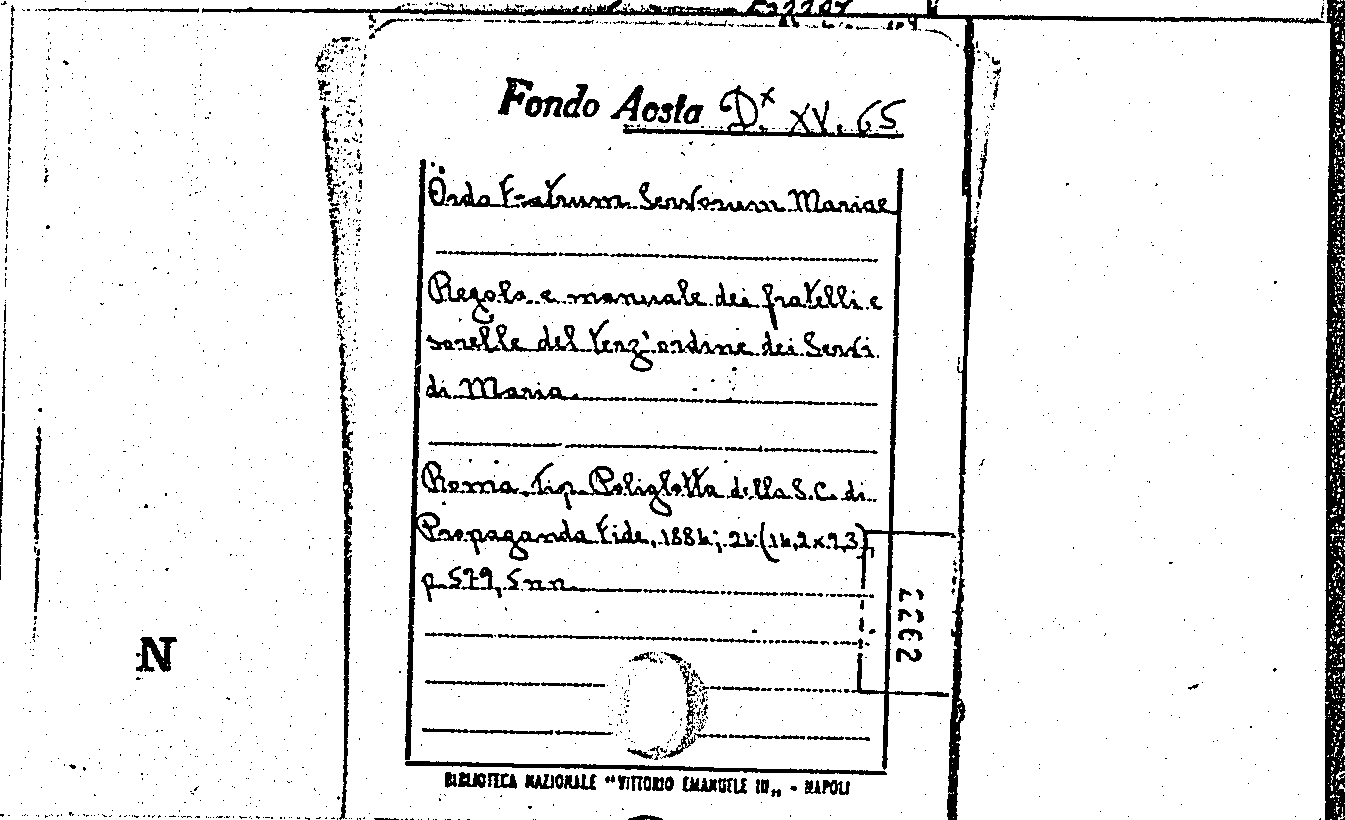 Fondo Aosta D.x XV. 65
Ordo Fratrum Servorum Mariae
Regola e manuale dei fratelli e
sorelle del terz'ordine dei Servi
di Maria
Roma. Tip. Poliglotta della S.C. di
Propaganda Fide, 1884; 24° (14,2x9,3),
p. 579, 5 nn.
2262
N
BIBLIOTECA NAZIONALE "VITTORIO EMANUELE III„ - NAPOLI